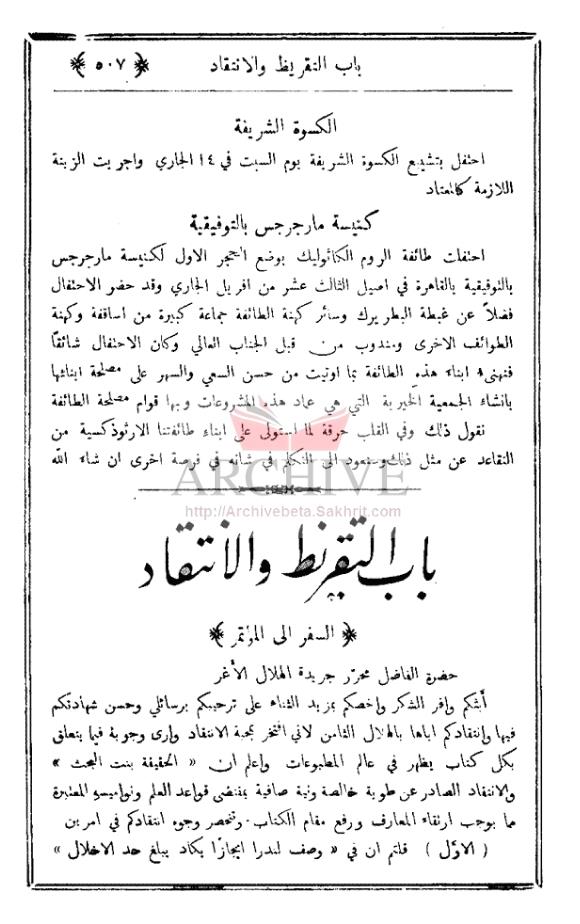 باب التقريظ والانتقاد ﴿ ٥٠٧ ﴾
الكسوة الشريفة
احتفل بتشييع الكسوة الشريفة يوم السبت في ١٤ الجاري واجريت الزينة
اللازمة كالمعتاد
كنيسة مارجرجس بالتوفيقية
احتفلت طائفة الروم الكاثوليك بوضع الحجر الاول لكنيسة مارجرجس
بالتوفيقية بالقاهرة في اصيل الثالث عشر من افريل الجاري وقد حضر الاحتفال
فضلاً عن غبطة البطريرك وسائر كهنة الطائفة جماعة كبيرة من اساقفة وكهنة
الطوائف الاخرى ومندوب من قبل الجناب العالي وكان الاحتفال شائقًا
فنهنىء ابناء هذه الطائفة بما اوتيت من حسن السعي والسهر على مصلحة ابنائها
بانشاء الجمعية الخيرية التي هي عماد هذه المشروعات وبها قوام مصلحة الطائفة
نقول ذلك وفي القلب حرقة لما استولى على ابناء طائفتنا الارثوذكسية من
التقاعد عن مثل ذلك وسنعود الى التكلم في شانه في فرصة اخرى ان شاء الله
ARCHIVE
http://Archivebeta.Sakhrit.com
باب التقريظ والانتقاد
﴿ السفر الى المؤتمر ﴾
حضرة الفاضل محرّر جريدة الهلال الأغر
أبثكم وافر الشكر واخصكم بمزيد الثناء على ترحيبكم برسائلي وحسن شهادتكم
فيها وانتقادكم اياها بالهلال الثامن لاني افتخر بمحبة الانتقاد وارى وجوبه فيما يتعلق
بكل كتاب يظهر في عالم المطبوعات واعلم ان « الحقيقة بنت البحث »
والانتقاد الصادر عن طوية خالصة ونية صافية بمقتضى قواعد العلم ونواميسه المعتبرة
مما يوجب ارتقاء المعارف ورفع مقام الكتاب. وتنحصر وجوه انتقادكم في امرين
( الاوّل ) قلتم ان في « وصف لندرا ايجازًا يكاد يبلغ حد الاخلال »